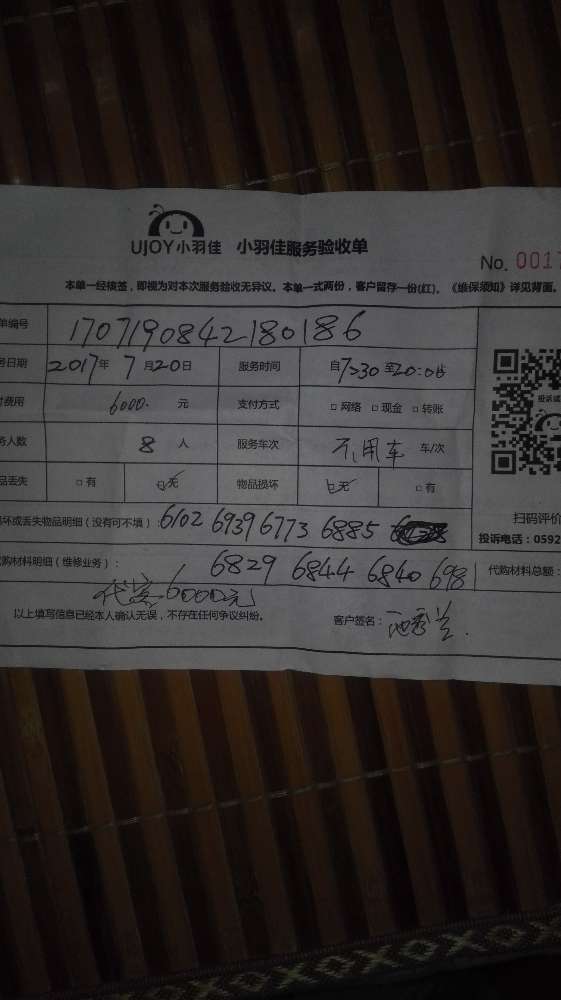 UJOY小羽佳 小羽佳服务验收单
No. 0017
本单一经核签，即视为对本次服务验收无异议。本单一式两份，客户留存一份(红)。《维保须知》详见背面。
单编号 1707190842180186
务日期 2017年 7月20日 服务时间 自7:30至20:00
费用 6000. 元 支付方式 □ 网络 □ 现金 □ 转账
务人数 8 人 服务车次 不用车 车/次
品丢失 □ 有 □ 无 物品损坏 □ 无 □ 有
投诉或
坏或丢失物品明细（没有可不填）: 6102 6939 6773 6885
扫码评价
投诉电话：0592
购材料明细（维修业务）: 6829 6844 6840 698 代购材料总额：
6000元
以上填写信息已经本人确认无误，不存在任何争议纠纷。 客户签名：